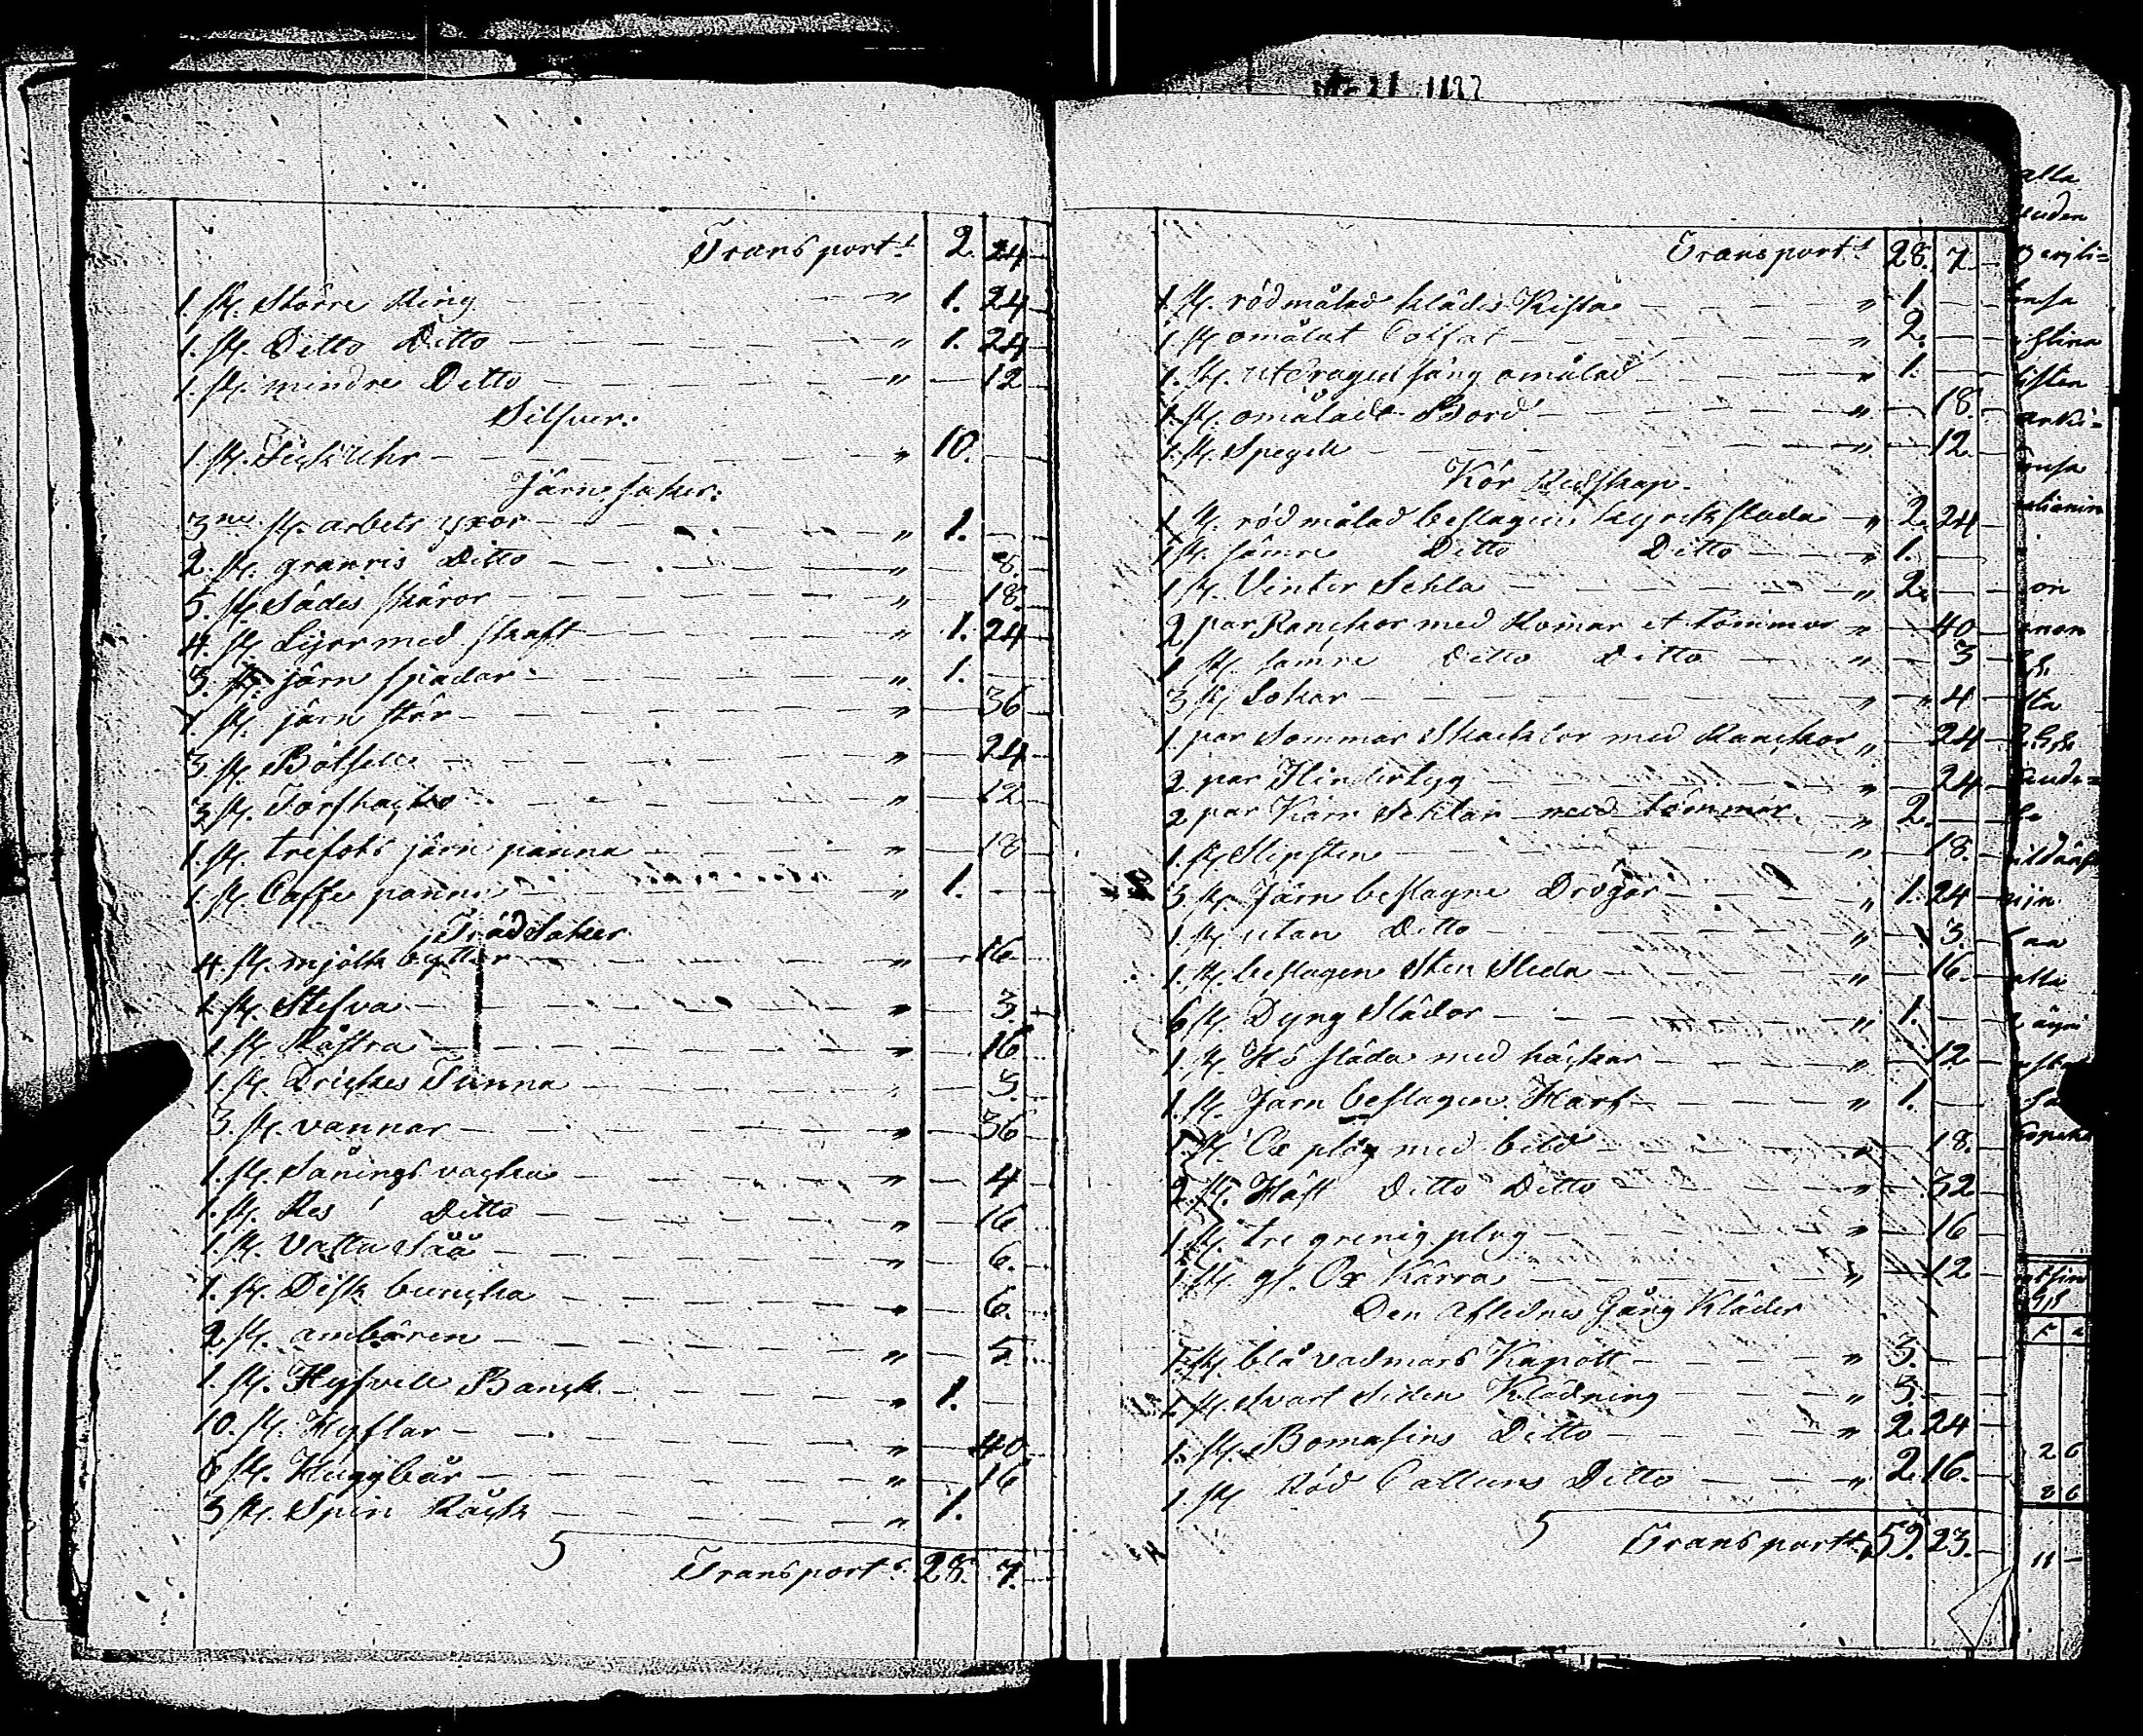 Transport 2. 24
1. st. Större Ring " 1. 24
1. st. Ditto Ditto " 1. 24
1. st. mindre Ditto " 12
Silfver.
1 st. Fick Uhr " 10.
Järn saker.
3ne st. arbets yxor " 1.
2. st. granris Ditto " 8.
5. st. Sädes skäror " 18.
4. st. Lijor med skaft " 1. 24
3. st. järn spadar " 1.
1. st. järn stör " 36
3 st. Bötsell " 24
3 st. Torfhacko " 12
1. st. trefots järn panna " 18
1. st. Caffe panna " 1.
Träd Saker
4. st. mjölk byttor " 16
1 st. Stefva " 3.
1. st. Råstra 16
1. st. Drickes Tunna " 3.
3 st. vannar " 36
1. st. Sånings vacka " 4
1. st. Res Ditto " 16
1. st. Vattu Såå " 6.
1. st. Disk buncka 6.
2 st. ambåren " 5
1. st. Hyfvell Banck " 1.
10. st. Hyflar " 40
6 st. Huggbår " 16
3 st. Spin Råck " 1.
5
Transport 28. 7.
Transport 28. 7.
1 st. rödmålad klädes Kista " 1.
1 st. omålat " 2.
1. st. utdragen säng omålad " 1.
1. st. omåladt Bord " 18.
1. st. Spegell " 12.
Kör Redskap.
1 st. röd målad beslagen kyrckslada " 2. 24
1 st. sämre Ditto Ditto " 1.
1 st. Vinter Sehla " 2.
2 par Ranckor med Romar et tömmar " 40
1 st. sämre Ditto Ditto " 3
3 st. Lokar " 4
1 par Sommar Skacklor med Ranckor " 24
2 par Hindertyg " 24
2 par Körr Sehlar med tömmar " 2.
1. st. Slipsten " 18.
3 st. Järn beslagne Drögar " 1. 24
1. st. utan Ditto " 3.
1. st. beslagen Sten Sleda 16.
6 st. Dyng Slädor " 1.
1. st. Hö släda med häckar " 12
1. st. Järn beslagen Harf " 1.
1. st. Ox plog med bild " 18.
2. st. Häst Ditto Ditto " 32
1 st. tre grenig plog " 16
1. st. gl. Ox Kärra " 12
Den Aflednes Gång Kläder
1. st. blå vadmars Kapott " 3.
1. st. Svart Siden Klädning " 3.
1. st. Bomasins Ditto " 2. 24
1. st. Röd Cattuns Ditto " 2. 16.
5
Transport 59. 23.